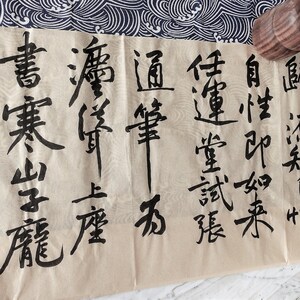 自性即如来
任運堂試張
通筆為
灋聳上座
書寒山子龐